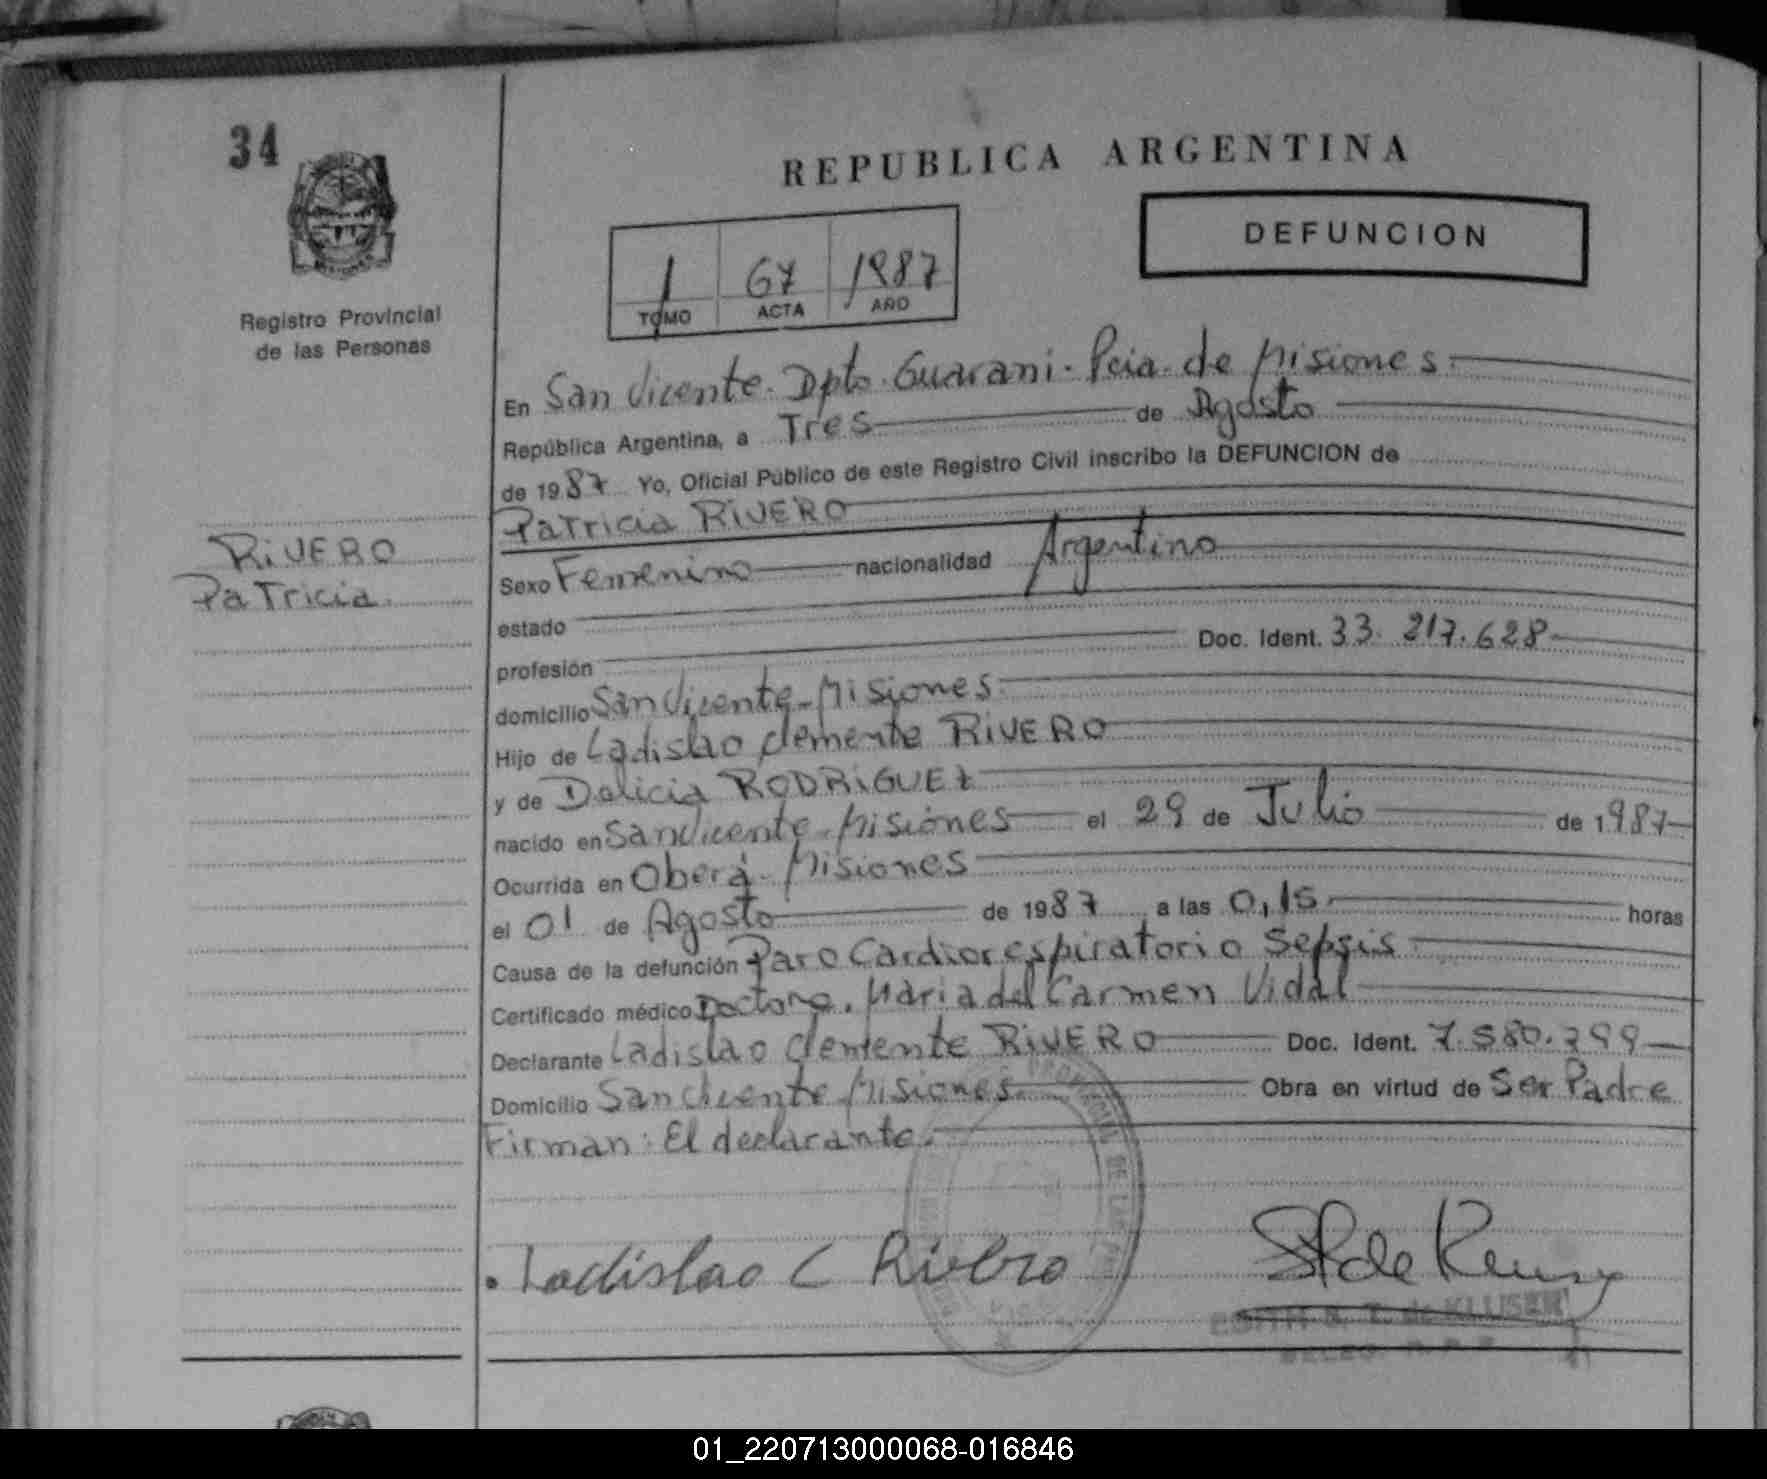 34
REPUBLICA ARGENTINA
DEFUNCION
1 67 1987
TOMO ACTA AÑO
MISIONES
Registro Provincial
de las Personas
En San Vicente. Dpto. Guarani. Pcia. de Misiones.
República Argentina, a Tres de Agosto
de 1987 Yo, Oficial Público de este Registro Civil inscribo la DEFUNCION de
Patricia RIVERO
RIVERO
Patricia.
Sexo Femenino nacionalidad Argentino
estado
profesión Doc. Ident. 33.217.628
domicilio San Vicente-Misiones.
Hijo de Ladislao Clemente RIVERO
y de Delicia RODRIGUEZ
nacido en San Vicente-Misiones el 29 de Julio de 1987
Ocurrida en Oberá-Misiones
el 01 de Agosto de 1987 a las 0,15. horas
Causa de la defunción Paro Cardiorespiratorio Sepsis.
Certificado médico Doctora. Maria del Carmen Vidal
Declarante Ladislao Clemente RIVERO Doc. Ident. 7.580.799
Domicilio San Vicente-Misiones. Obra en virtud de Ser Padre
Firman: El declarante.
Ladislao C Rivero
de KLUSER
01_220713000068-016846